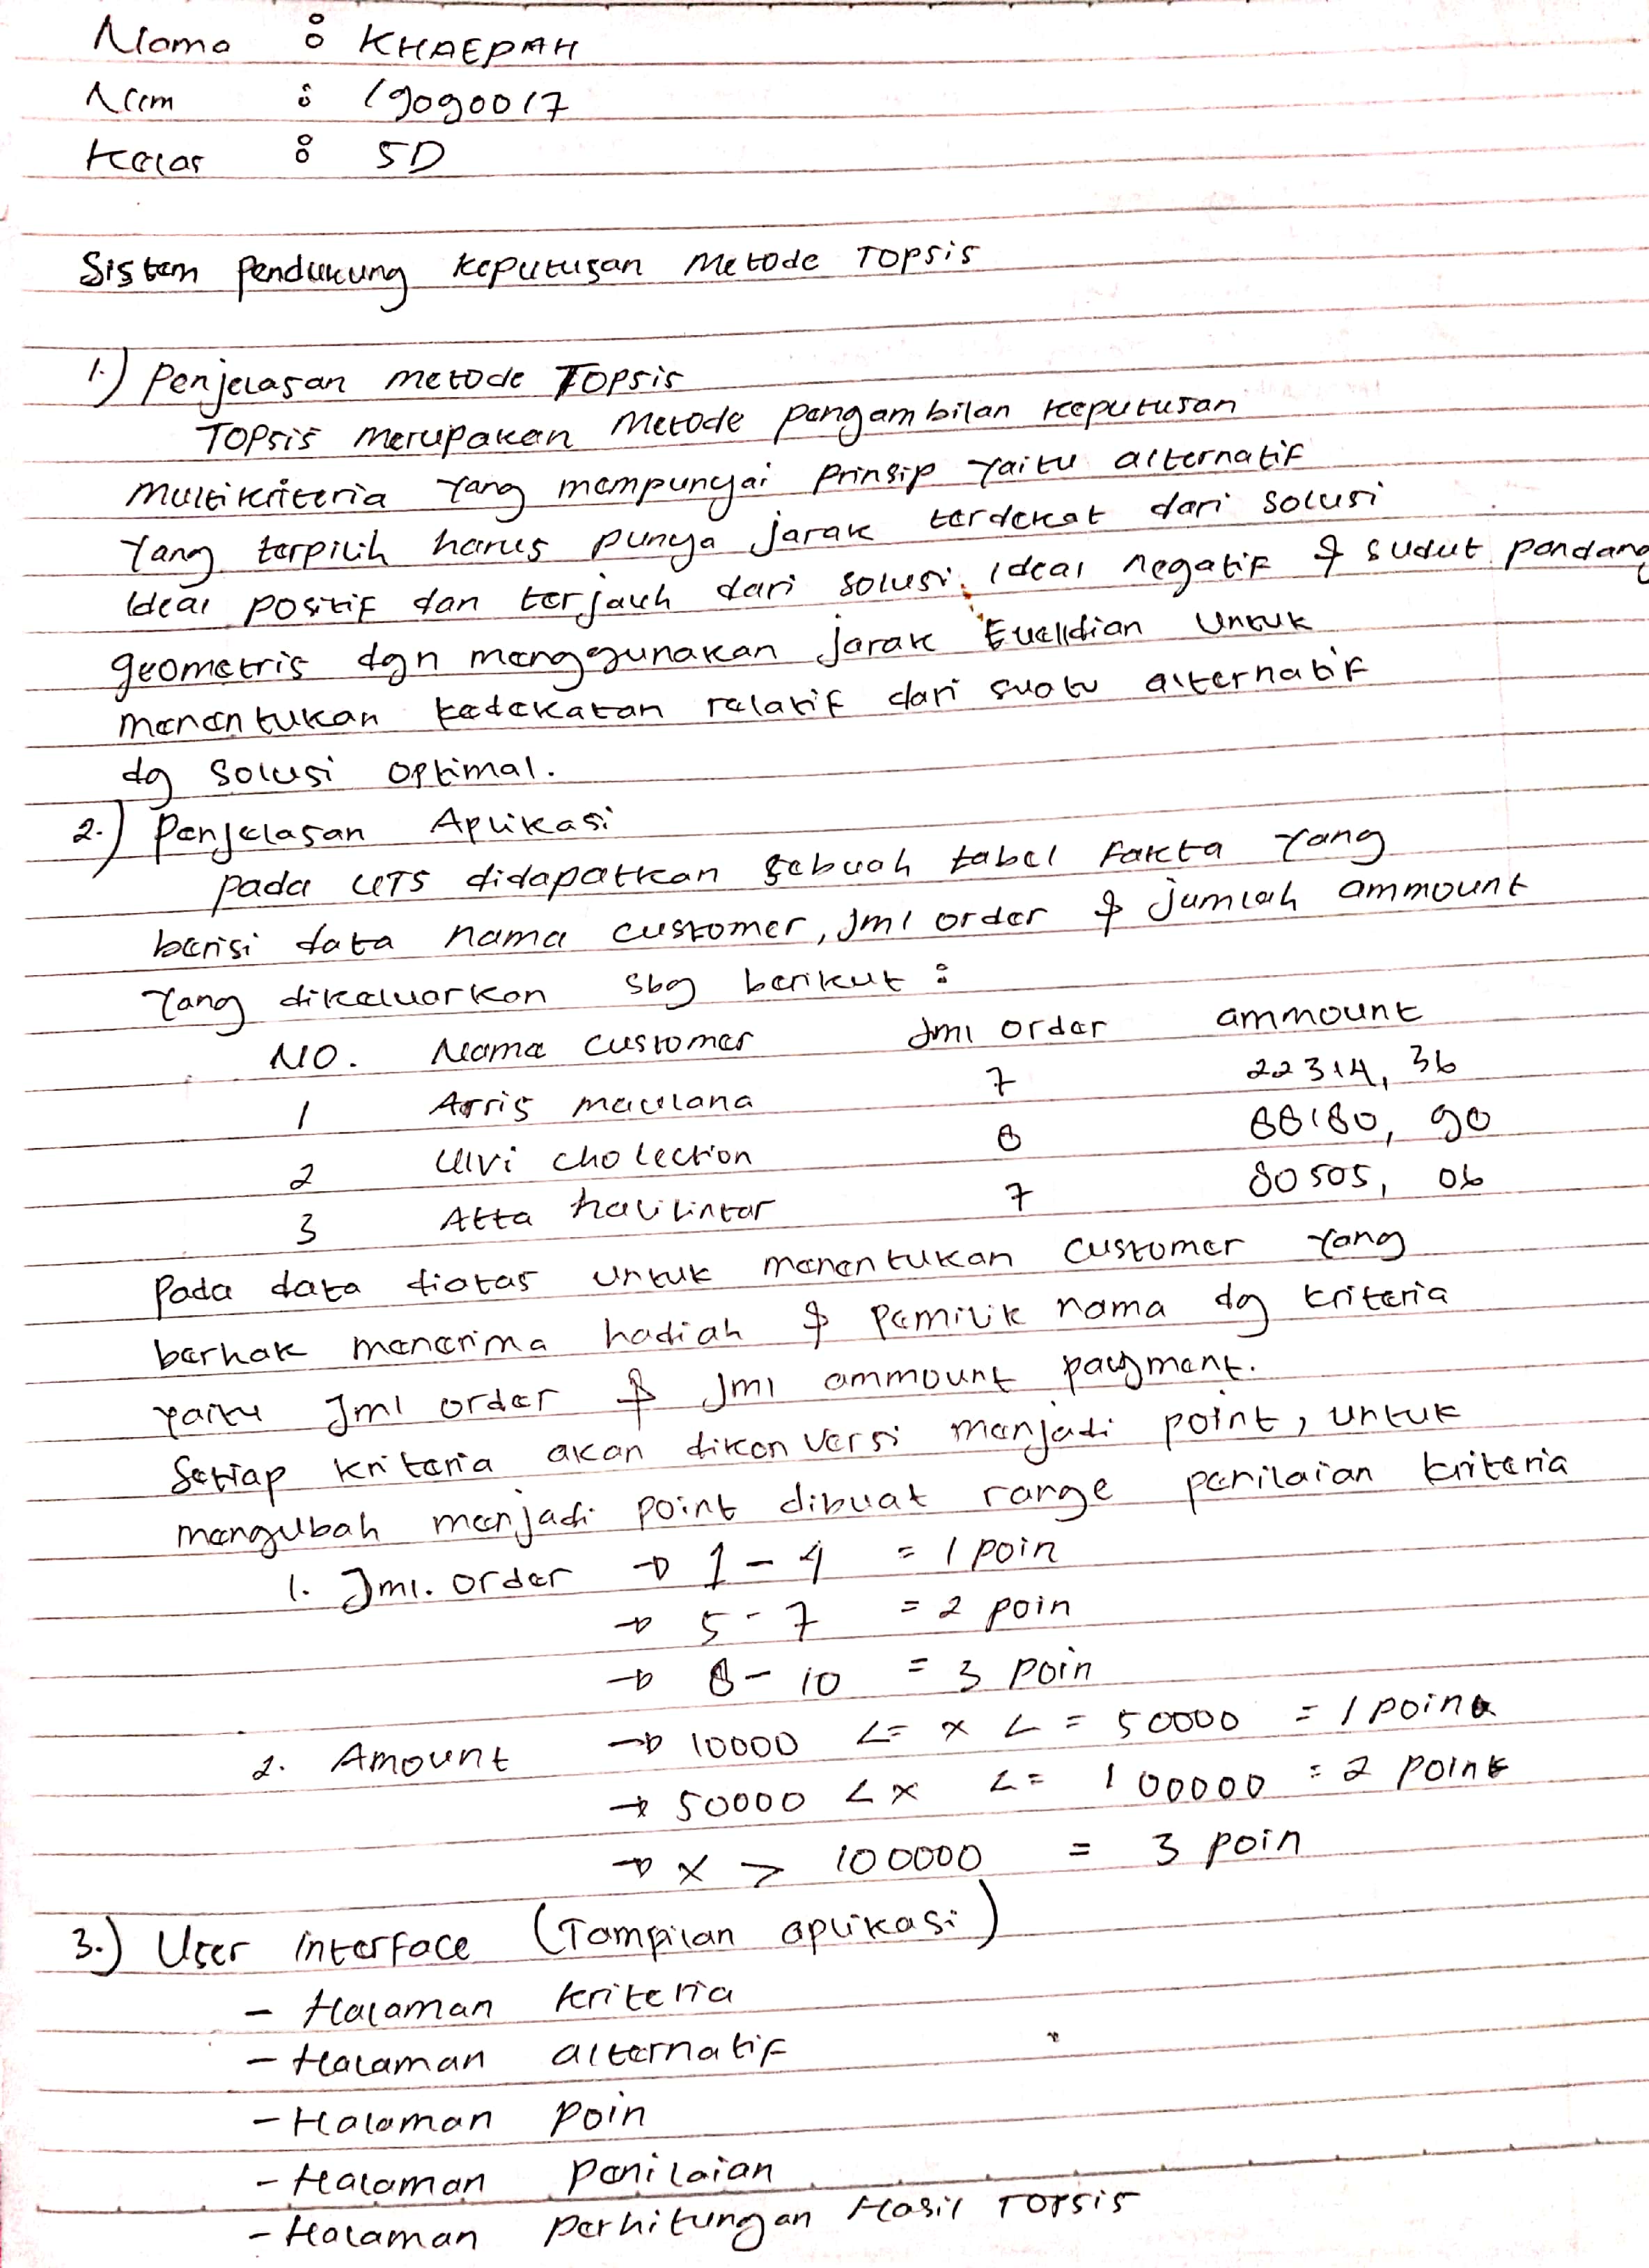 Nama : KHAEPAH
Nim : 19090017
Kelas : 5D
Sistem Pendukung Keputusan Metode Topsis
1.) Penjelasan metode Topsis
Topsis merupakan metode pengambilan keputusan
multikriteria yang mempunyai prinsip yaitu alternatif
yang terpilih harus punya jarak terdekat dari solusi
ideal positif dan terjauh dari solusi ideal negatif & sudut pandang
geometris dgn menggunakan jarak Euclidian untuk
menentukan kedekatan relatif dari suatu alternatif
dg solusi optimal.
2.) Penjelasan Aplikasi
Pada UTS didapatkan sebuah tabel fakta yang
berisi data nama customer, Jml order & jumlah ammount
yang dikeluarkan sbg berikut :
NO. Nama customer Jml order ammount
1 Arris maulana 7 22314, 36
2 Ulvi cholection 8 88180, 90
3 Atta halilintar 7 80505, 06
Pada data diatas untuk menentukan customer yang
berhak menerima hadiah & pemilik nama dg kriteria
yaitu Jml order & Jml ammount payment.
Setiap kriteria akan dikonversi menjadi point, untuk
mengubah menjadi point dibuat range penilaian kriteria
1. Jml. order → 1 - 4 = 1 poin
→ 5 - 7 = 2 poin
→ 8 - 10 = 3 poin
2. Amount → 10000 <= x <= 50000 = 1 poin
→ 50000 < x <= 100000 = 2 point
→ x > 100000 = 3 poin
3.) User interface (Tampilan aplikasi)
- Halaman kriteria
- Halaman alternatif
- Halaman poin
- Halaman penilaian
- Halaman perhitungan Hasil TOPSIS